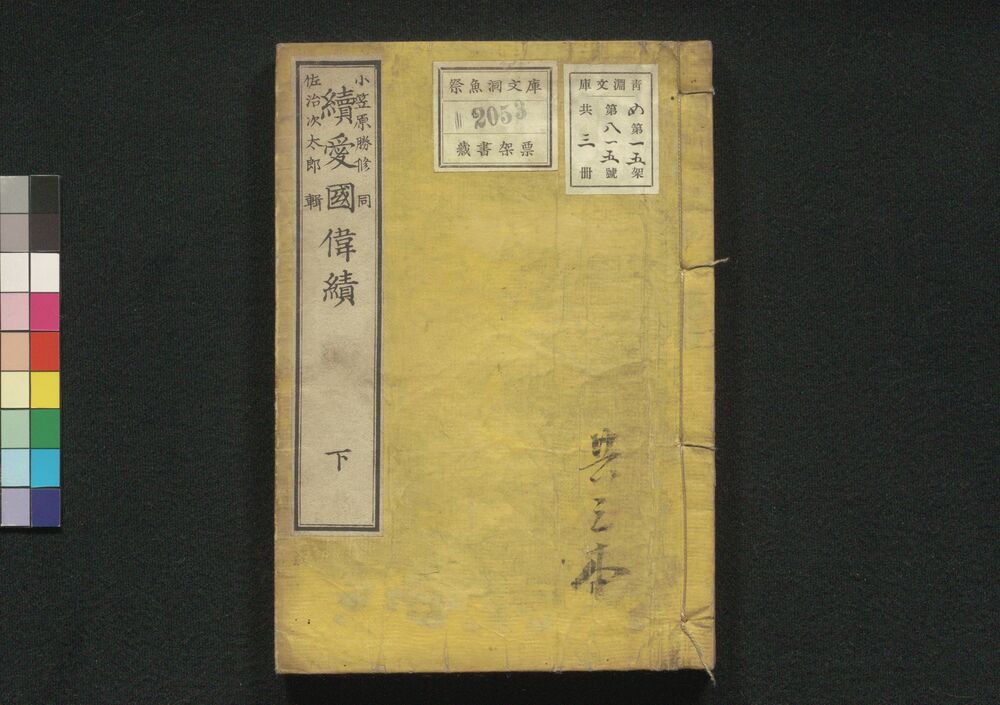 小笠原勝修 同
佐治次太郎 輯
續愛國偉績
下
祭魚洞文庫
2053
藏書架票
靑淵文庫
め第一五架
第八一五號
共三冊
共三本